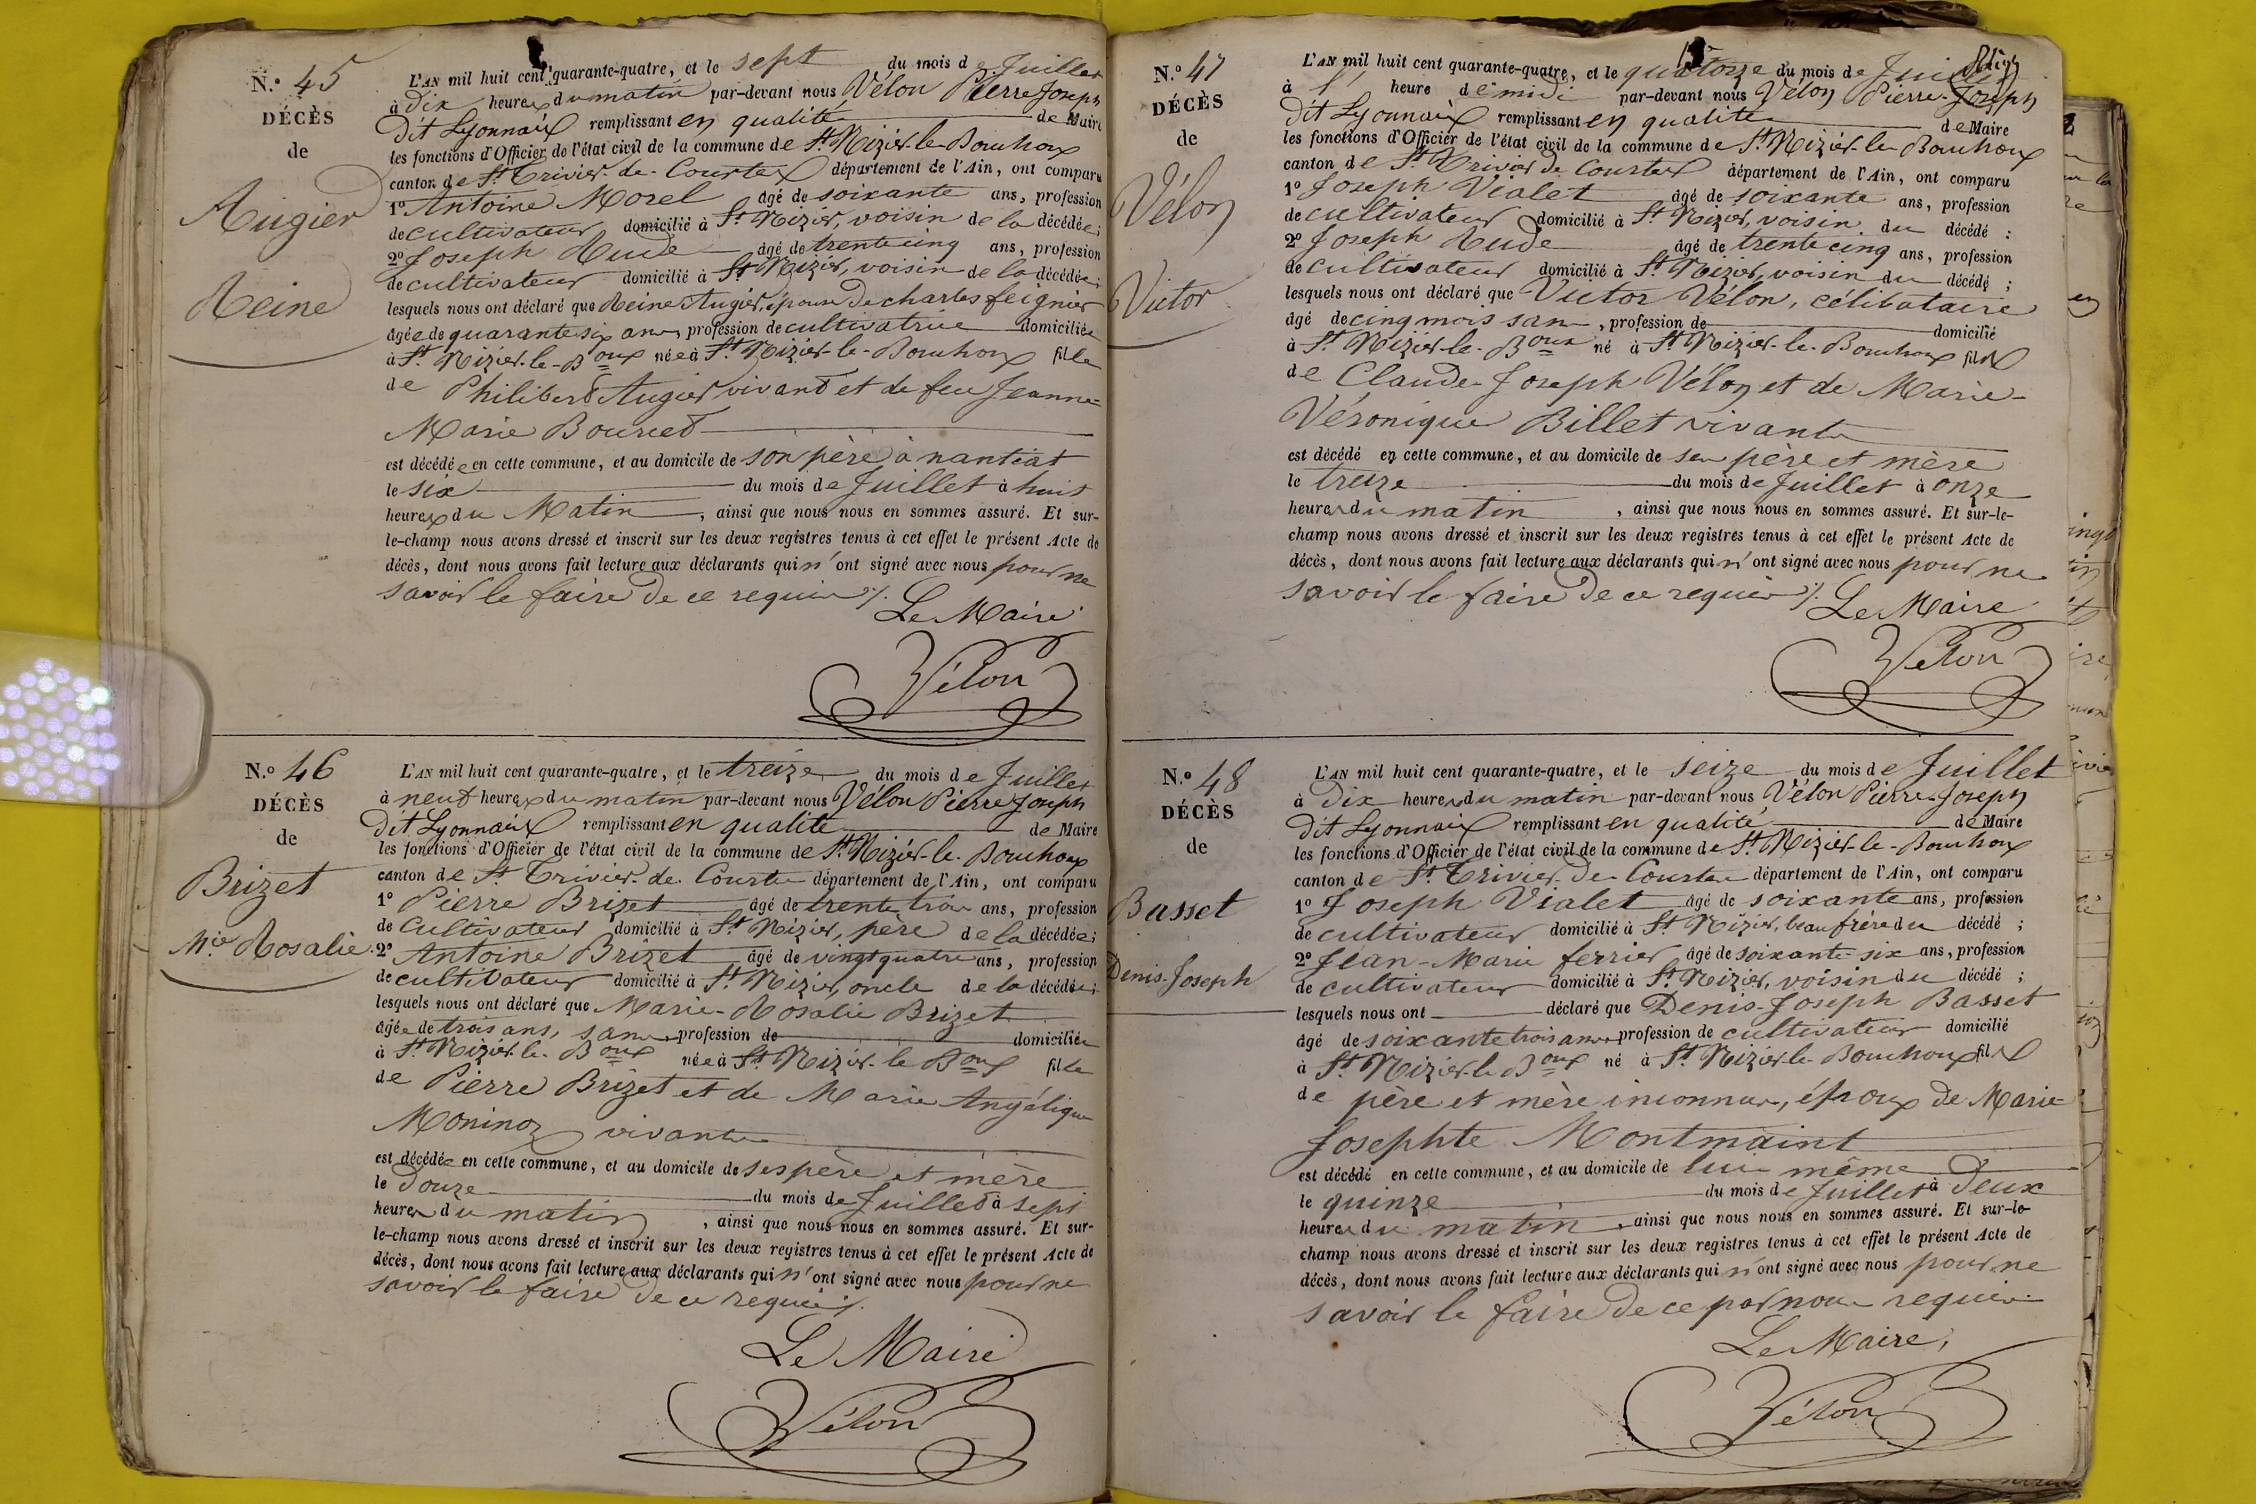 N.º 45
DÉCÈS
de
Augier
Reine
L'AN mil huit cent quarante-quatre, et le sept du mois de Juillet
à dix heures du matin par-devant nous Vélon Pierre Joseph
dit Lyonnais remplissant en qualité de Maire
les fonctions d'Officier de l'état civil de la commune de St. Nizier-le-Bouchoux
canton de St. Trivier-de-Courtes département de l'Ain, ont comparu
1º Antoine Morel âgé de soixante ans, profession
de cultivateur domicilié à St Nizier, voisin de la décédée;
2º Joseph Rude âgé de trente cinq ans, profession
de cultivateur domicilié à St Nizier, voisin de la décédée;
lesquels nous ont déclaré que Reine Augier, épouse de charles feignier
âgée de quarante six ans, profession de cultivatrice domiciliée
à St. Nizier-le-Boux née à St. Nizier-le-Bouchoux fille
de Philibert Augier vivant et de feu Jeanne-
Marie Bourcet
est décédée en cette commune, et au domicile de son père à nantiat
le six du mois de Juillet à huit
heures du Matin, ainsi que nous nous en sommes assuré. Et sur-
le-champ nous avons dressé et inscrit sur les deux registres tenus à cet effet le présent Acte de
décès, dont nous avons fait lecture aux déclarants qui n'ont signé avec nous pour ne
savoir le faire de ce requis /.
Le Maire
Vélon
N.º 46
DÉCÈS
de
Brizet
Mie Rosalie
L'AN mil huit cent quarante-quatre, et le treize du mois de Juillet
à neuf heures du matin par-devant nous Vélon Pierre Joseph
dit Lyonnais remplissant en qualité de Maire
les fonctions d'Officier de l'état civil de la commune de St. Nizier-le-Bouchoux
canton de St. Trivier-de-Courtes département de l'Ain, ont comparu
1º Pierre Brizet âgé de trente trois ans, profession
de Cultivateur domicilié à St Nizier, père de la décédée;
2º Antoine Brizet âgé de vingt quatre ans, profession
de cultivateur domicilié à St Nizier, oncle de la décédée;
lesquels nous ont déclaré que Marie-Rosalie Brizet
âgée de trois ans, sans profession de domiciliée
à St Nizier-le-Boux née à St Nizier-le Boux fille
de Pierre Brizet et de Marie Angélique
Moninoz vivants
est décédée en cette commune, et au domicile de ses père et mère
le douze du mois de Juillet à sept
heures du matin, ainsi que nous nous en sommes assuré. Et sur-
le-champ nous avons dressé et inscrit sur les deux registres tenus à cet effet le présent Acte de
décès, dont nous avons fait lecture aux déclarants qui n'ont signé avec nous pour ne
savoir le faire de ce requis /.
Le Maire
Vélon
N.º 47
DÉCÈS
de
Vélon
Victor
L'AN mil huit cent quarante-quatre, et le quatorze du mois de Juillet
à l' heure de midi par-devant nous Vélon Pierre-Joseph
dit Lyonnais remplissant en qualité de Maire
les fonctions d'Officier de l'état civil de la commune de St. Nizier-le-Bouchoux
canton de St. Trivier de Courtes département de l'Ain, ont comparu
1º Joseph Vialet âgé de soixante ans, profession
de cultivateur domicilié à St Nizier, voisin du décédé :
2º Joseph Rude âgé de trente cinq ans, profession
de cultivateur domicilié à St Nizier, voisin du décédé ;
lesquels nous ont déclaré que Victor Vélon, célibataire
âgé de cinq mois sans, profession de domicilié
à St. Nizier-le-Boux né à St. Nizier-le-Bouchoux fils
de Claude Joseph Vélon et de Marie-
Véronique Billet vivants
est décédé en cette commune, et au domicile de ses père et mère
le treize du mois de Juillet à onze
heures du matin, ainsi que nous nous en sommes assuré. Et sur-le-
champ nous avons dressé et inscrit sur les deux registres tenus à cet effet le présent Acte de
décès, dont nous avons fait lecture aux déclarants qui n'ont signé avec nous pour ne
savoir le faire de ce requis /.
Le Maire
Vélon
N.º 48
DÉCÈS
de
Basset
Denis-Joseph
L'AN mil huit cent quarante-quatre, et le seize du mois de Juillet
à dix heures du matin par-devant nous Vélon Pierre-Joseph
dit Lyonnais remplissant en qualité de Maire
les fonctions d'Officier de l'état civil de la commune de St. Nizier-le-Bouchoux
canton de St. Trivier de Courtes département de l'Ain, ont comparu
1º Joseph Vialet âgé de soixante ans, profession
de cultivateur domicilié à St Nizier, beau frère du décédé ;
2º Jean-Marie ferrier âgé de soixante-six ans, profession
de cultivateur domicilié à St Nizier, voisin du décédé ;
lesquels nous ont déclaré que Denis-Joseph Basset
âgé de soixante trois ans profession de cultivateur domicilié
à St. Nizier-le Boux né à St. Nizier-le-Bouchoux fils
de père et mère inconnus, époux de Marie
Josephte Montmaint
est décédé en cette commune, et au domicile de lui même
le quinze du mois de Juillet à deux
heures du matin, ainsi que nous nous en sommes assuré. Et sur-le-
champ nous avons dressé et inscrit sur les deux registres tenus à cet effet le présent Acte de
décès, dont nous avons fait lecture aux déclarants qui n'ont signé avec nous pour ne
savoir le faire de ce par nous requis
Le Maire,
Vélon